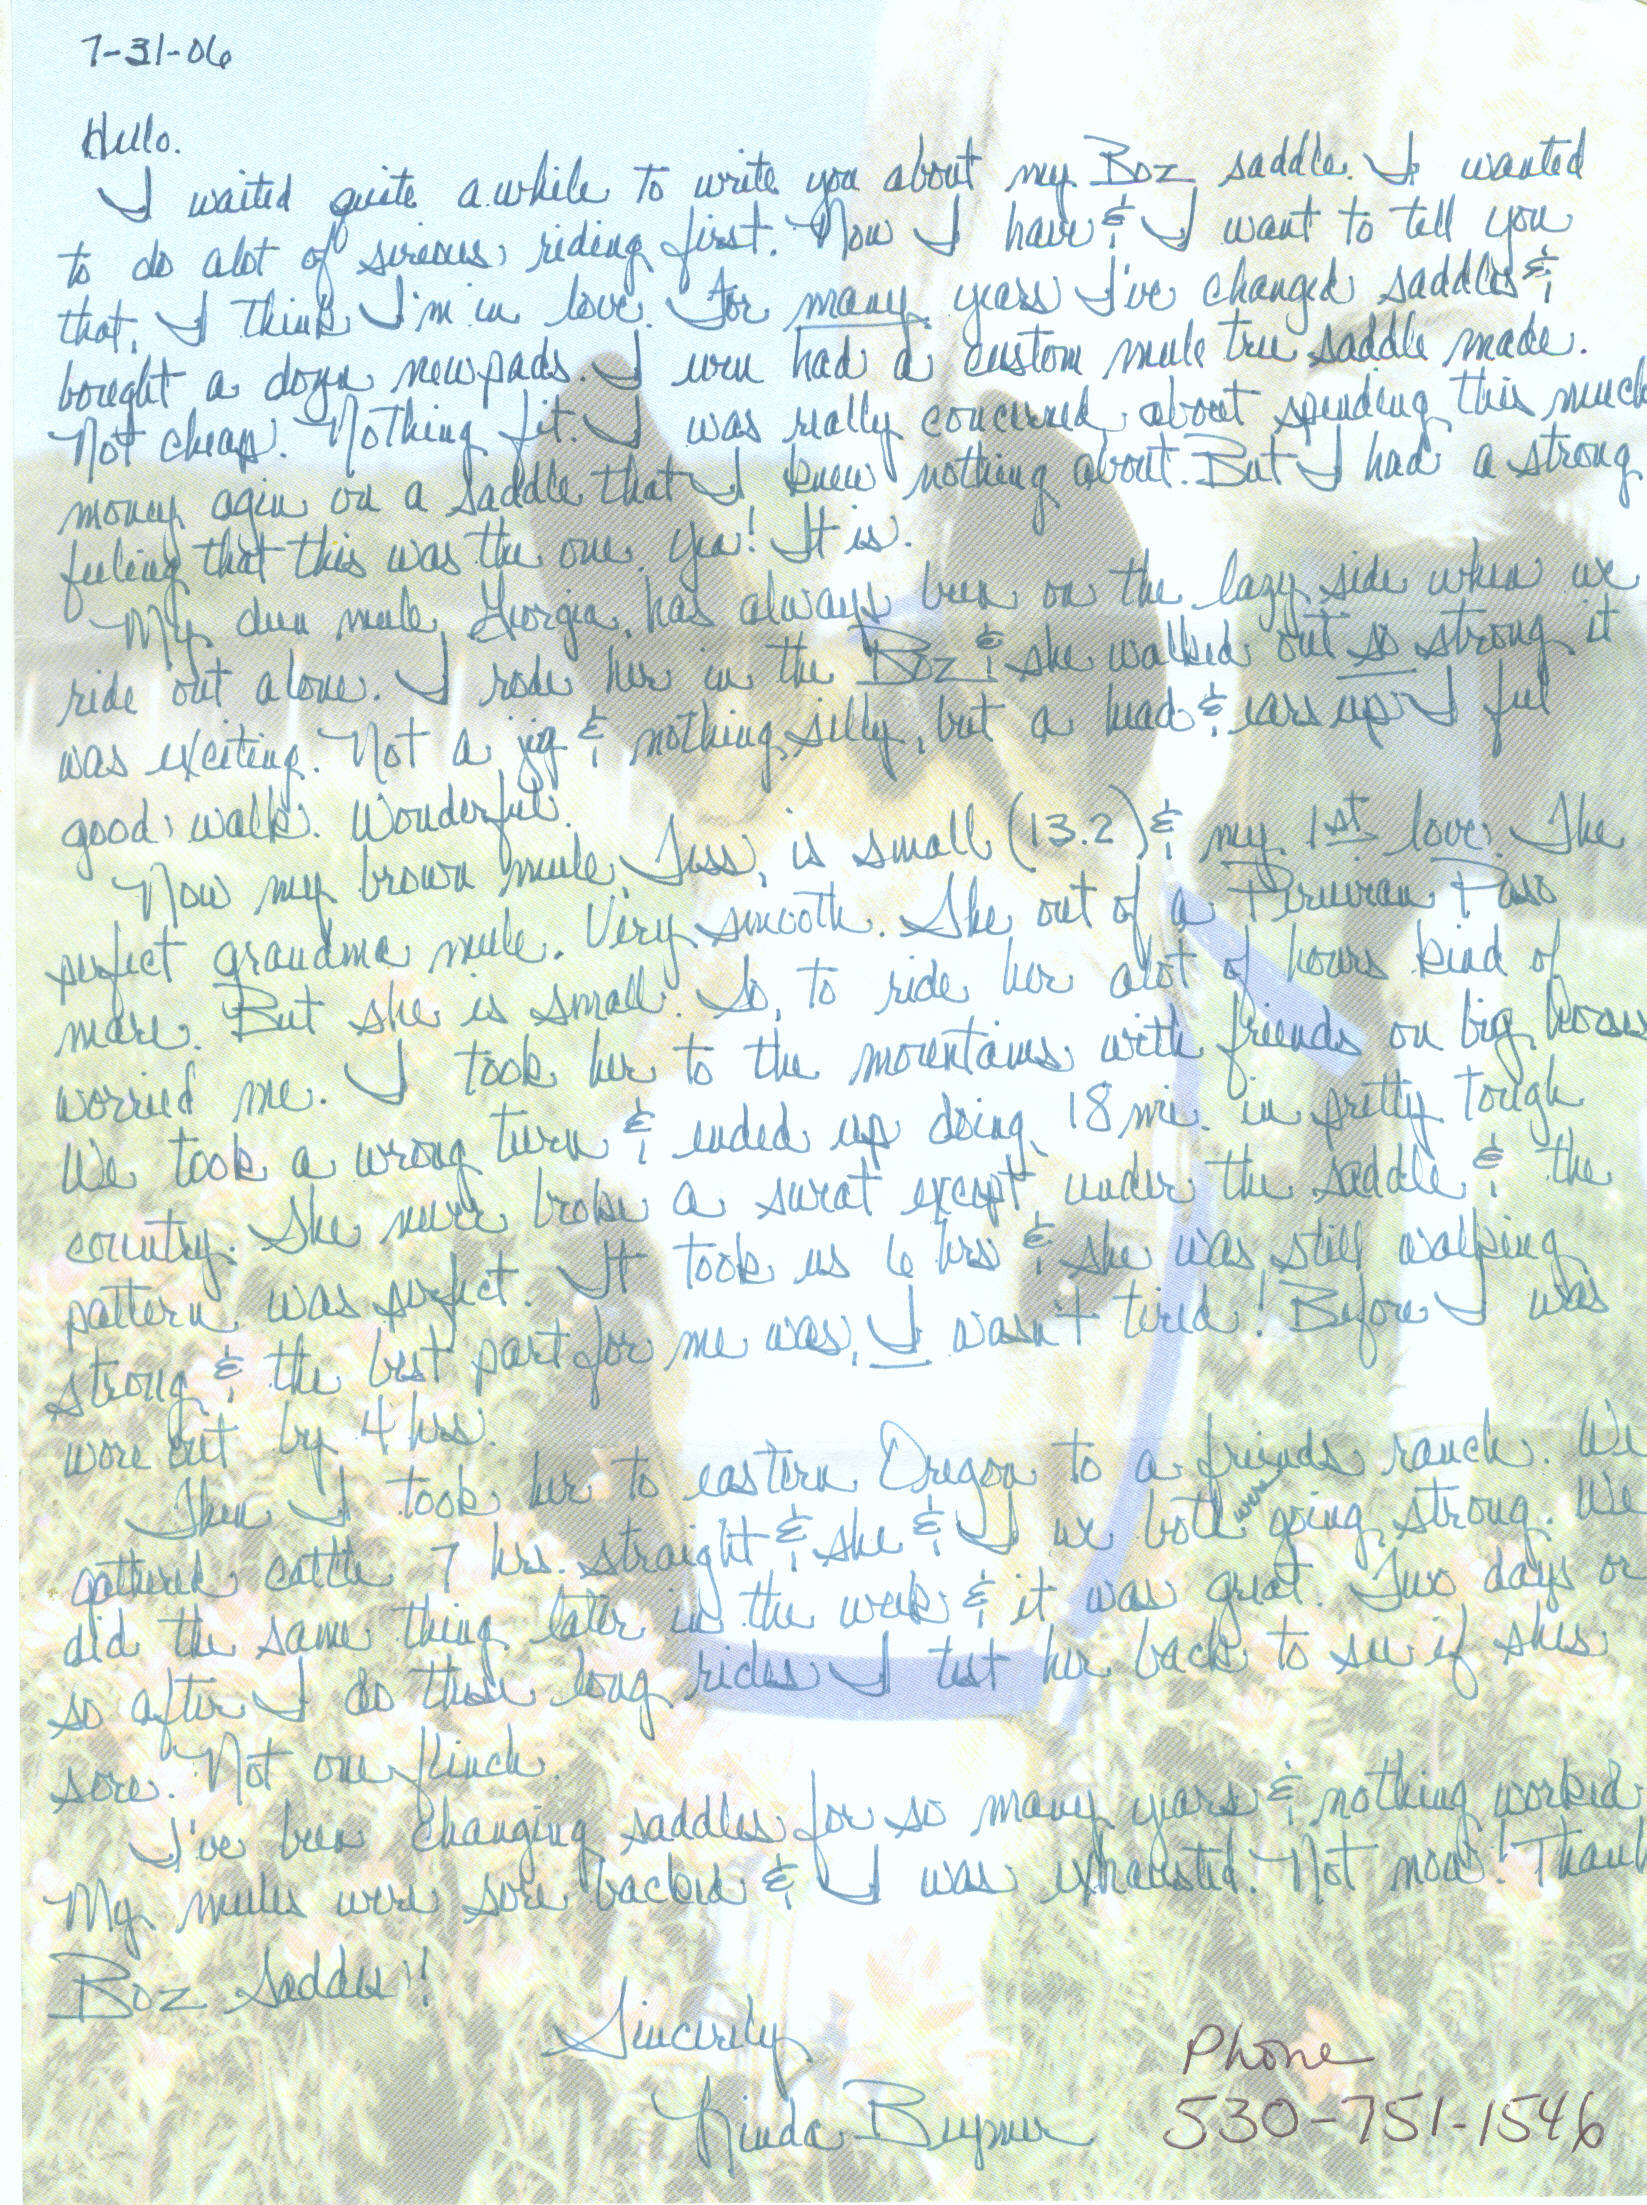 7-31-06
Hello.
I waited quite a while to write you about my Boz saddle. I wanted
to do alot of sireous riding first. Now I have & I want to tell you
that, I think I'm in love. For many years I've changed saddles &
bought a dozen new pads. I even had a custom mule tree saddle made.
Not cheap. Nothing fit. I was really concerned about spending this much
money agin on a saddle that I knew nothing about. But I had a strong
feeling that this was the one. Yea! It is.
My dun mule, Georgia, has always been on the lazy side when we
ride out alone. I rode her in the Boz & she walked out so strong it
was exciting. Not a jig & nothing silly, but a head & ears up I feel
good walk. Wonderful.
Now my brown mule, Tess, is small (13.2) & my 1st love. The
perfect grandma mule. Very smooth. She out of a Peruvian Paso
mare. But she is small. So, to ride her alot of hours kind of
worried me. I took her to the mountains with friends on big horses
We took a wrong turn & ended up doing 18 mi. in pretty tough
country. She never broke a sweat except under the saddle & the
pattern was perfect. It took us 6 hrs & she was still walking
strong & the best part for me was, I wasn't tired! Before I was
wore out by 4 hrs.
Then I took her to eastern Oregon to a friends ranch. We
gathered cattle 7 hrs. straight & she & I we both were going strong. We
did the same thing later in the week & it was great. Two days or
so after I do these long rides I test her back to see if shes
sore. Not one flinch.
I've been changing saddles for so many years & nothing worked
My mules were sore backed & I was exhausted. Not now! Thank
Boz Saddle!!
Sincerely
Linda Beymer
Phone
530-751-1546